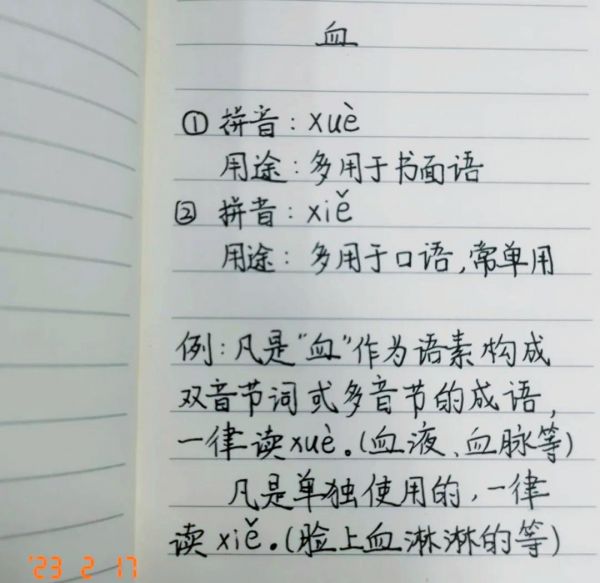 血
① 拼音：xuè
用途：多用于书面语
② 拼音：xiě
用途：多用于口语，常单用
例：凡是“血”作为语素构成
双音节词或多音节的成语，
一律读xuè。(血液、血脉等)
凡是单独使用的，一律
读xiě。(脸上血淋淋的等)
'23 2 17